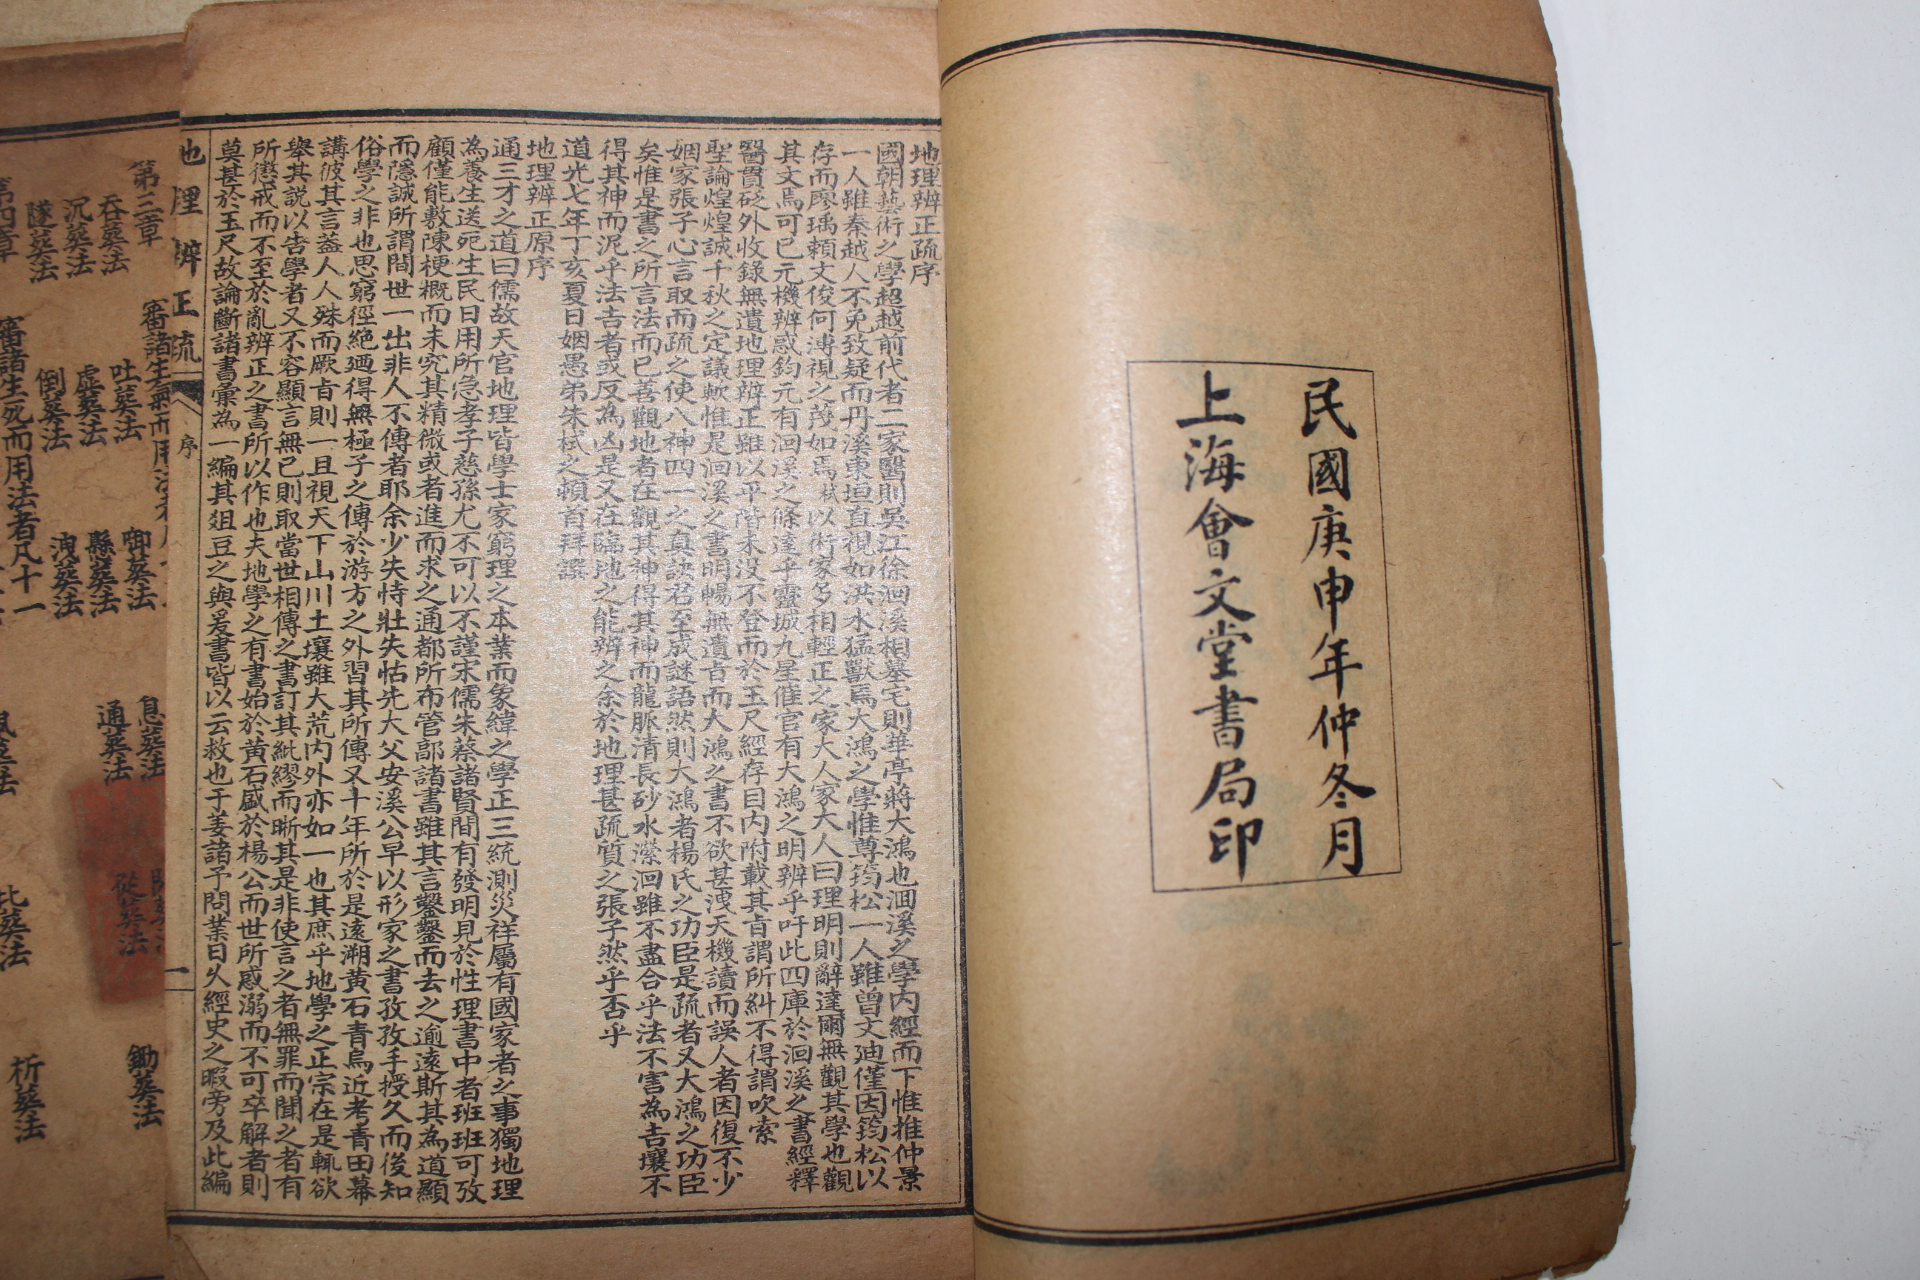 民國庚申年仲冬月
上海會文堂書局印
地理辨正疏序
國朝藝術之學超越前代者二家醫則吳江徐洄溪相墓宅則華亭蔣大鴻也洄溪之學內經而下惟推仲景
一人雖秦越人不免致疑而丹溪東垣直視如洪水猛獸焉大鴻之學惟尊筠松一人雖曾文迪僅因筠松以
存而廖瑀賴文俊何溥視之蔑如焉栻以術家多相輕正之家大人家大人曰理明則辭達爾無觀其學也觀
其文焉可已元機辨惑鈞元有洄溪之條達乎靈城九星催官有大鴻之明辨乎吁此四庫於洄溪之書經釋
醫貫砭外收錄無遺地理辨正雖以平階未沒不登而於玉尺經存目內附載其旨謂所糾不得謂吹索
聖論煌煌誠千秋之定議歟惟是洄溪之書明暢無遺旨而大鴻之書不欲甚洩天機讀而誤人者因復不少
姻家張子心言取而疏之使八神四一之真訣召至成謎語然則大鴻者楊氏之功臣是疏者又大鴻之功臣
矣惟是書之所言法而已善觀地者在觀其神得其神而龍脈清長砂水瀠洄雖不盡合乎法不害為吉壤不
得其神而泥乎法吉者或反為凶是又在臨地之能辨之余於地理甚疏質之張子然乎否乎
道光七年丁亥夏日姻愚弟朱栻之頓首拜譔
地理辨正原序
通三才之道曰儒故天官地理皆學士家窮理之本業而象緯之學正三統測災祥屬有國家者之事獨地理
為養生送死生民日用所急孝子慈孫尤不可以不謹宋儒朱蔡諸賢間有發明見於性理書中者班班可攷
顧僅能敷陳梗概而未究其精微或者進而求之通都所布管郭諸書雖其言鑿鑿而去之逾遠斯其為道顯
而隱誠所謂間世一出非人不傳者耶余少失恃壯失怙先大父安溪公早以形家之書孜孜手授久而後知
俗學之非也思窮徑絕廼得無極子之傳於游方之外習其所傳又十年所於是遠溯黃石青烏近考青田幕
講彼其言蓋人人殊而厥旨則一且視天下山川土壤雖大荒內外亦如一也其庶乎地學之正宗在是輒欲
舉其說以告學者又不容顯言無已則取當世相傳之書訂其紕繆而晰其是非使言之者無罪而聞之者有
所懲戒而不至於亂辨正之書所以作也夫地學之有書始於黃石盛於楊公而世所惑溺而不可卒解者則
莫甚於玉尺故論斷諸書彙為一編其俎豆之與爰書皆以云救也于姜諸予問業日久經史之暇旁及此編
地理辨正疏
序
一
第三章 審諸生氣而用法
吞葬法 吐葬法
沉葬法 虛葬法 懸葬法 通葬法 從葬法 鋤葬法
墜葬法 倒葬法 洩葬法
第四章 審諸生死而用法者凡十一
息葬法
析葬法